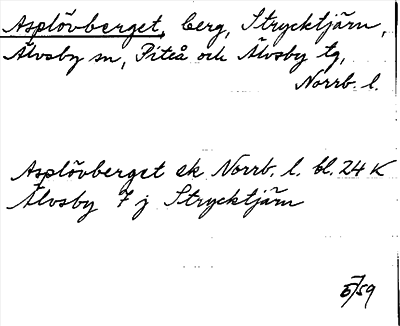 Asplövberget, berg, Strycktjärn,
Älvsby sn, Piteå och Älvsby tg,
Norrb. l.
Asplövberget ek Norrb. l. bl. 24 K
Älvsby 7 j Strycktjärn
5/59